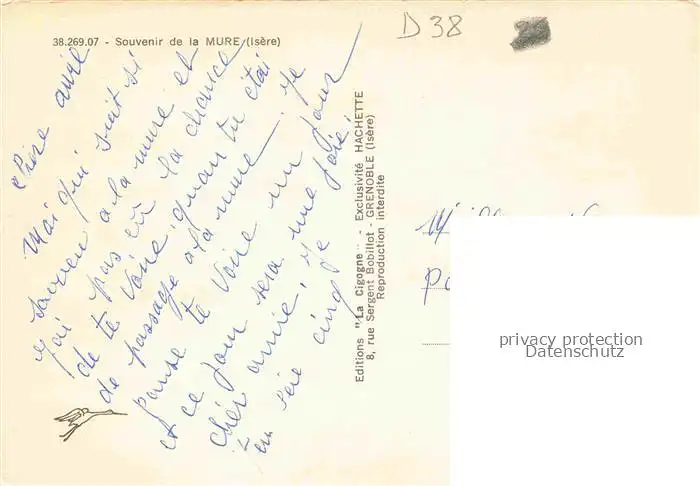 38.269.07 - Souvenir de la MURE (Isère)
D 38
Chère amie
Mai qui suit si
souven a la mure et
j'ai pas eu la chance
de te Voire quan tu étai
de passage a la mure. Je
panse te Voire un jour
et ce jour sera une joie,
chér amie, je
Editions "La Cigogne" - Exclusivité HACHETTE
8, rue Sergent Bobillot - GRENOBLE (Isère)
Reproduction interdite
privacy protection
Datenschutz